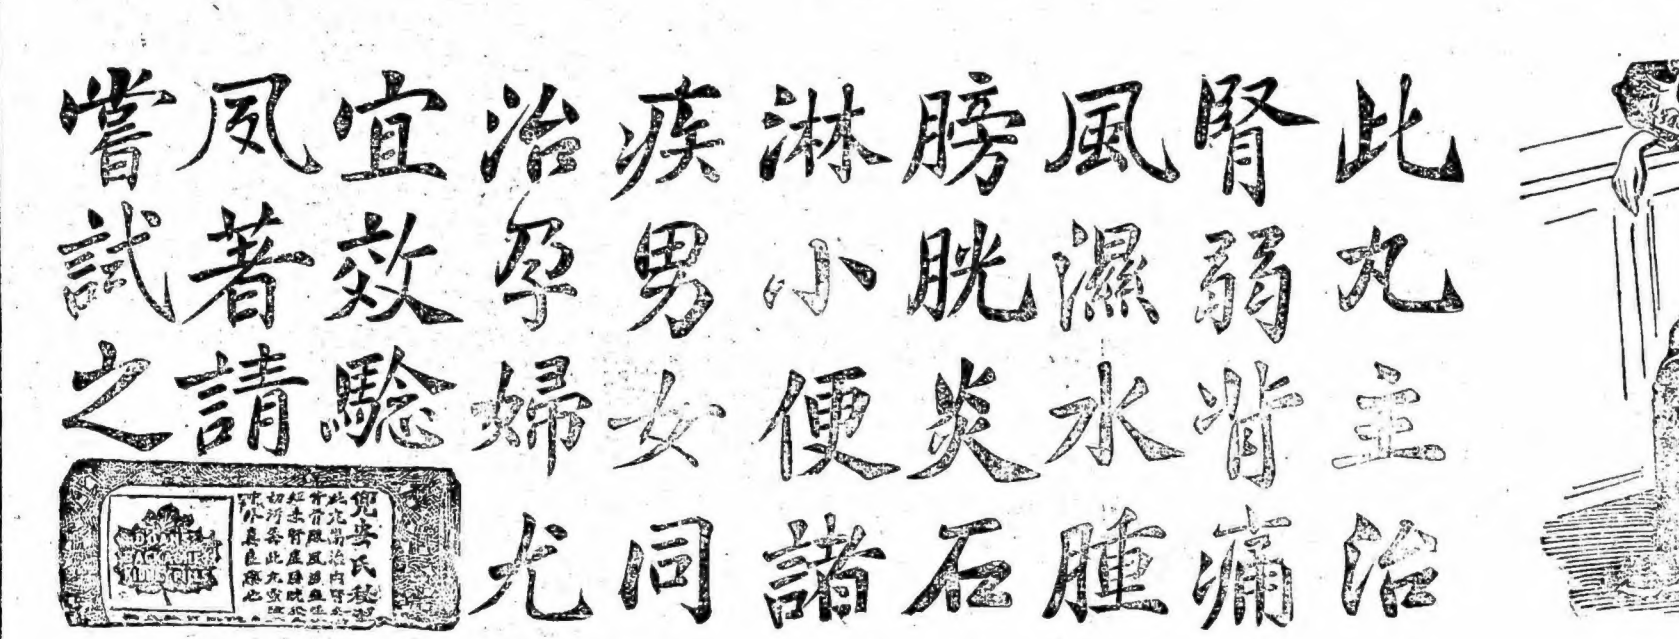 此丸主治
腎弱背痛
風濕水腫
膀胱炎石
淋小便諸
疾男女同
治孕婦尤
宜效驗
夙著請
嘗試之
兜安氏秘製
DOAN'S
BACKACHE
KIDNEY PILLS